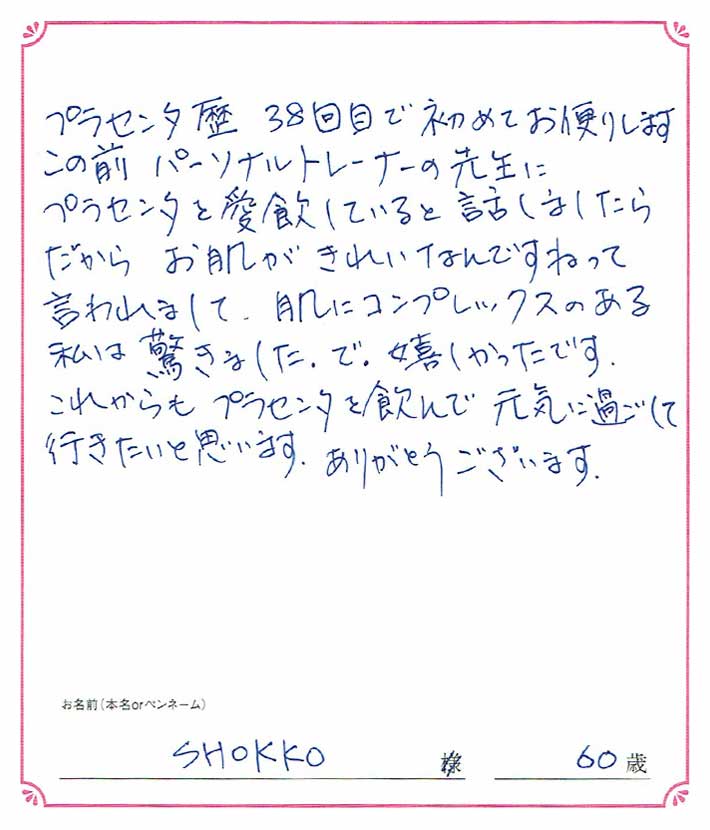 プラセンタ歴 38回目で初めてお便りします
この前 パーソナルトレーナーの先生に
プラセンタを愛飲していると話しましたら
だから お肌がきれいなんですねって
言われまして. 肌にコンプレックスのある
私は驚きました. で. 嬉しかったです.
これからも プラセンタを飲んで 元気に過ごして
行きたいと思います. ありがとうございます.
お名前(本名orペンネーム)
SHOKKO 様 60 歳